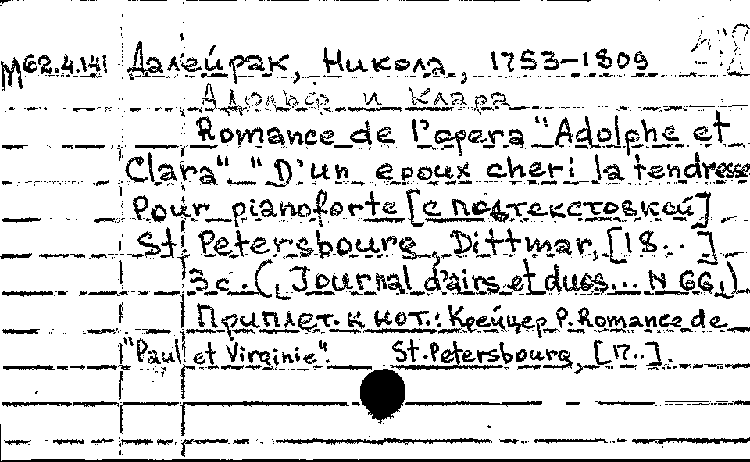 М62.4.141 Далейрак, Никола, 1753-1809
Адольф и Клара
Romance de l'opera "Adolphe et
Clara". "D'un epoux cheri la tendresse
Pour pianoforte [с подтекстовкой]
St. Petersbourg, Dittmar, [18..]
3с. (Journal d'airs et duos... N 66.)
Приплет. к нот.: Крейцер Р. Romance de
"Paul et Virginie". St. Petersbourg, [17..].